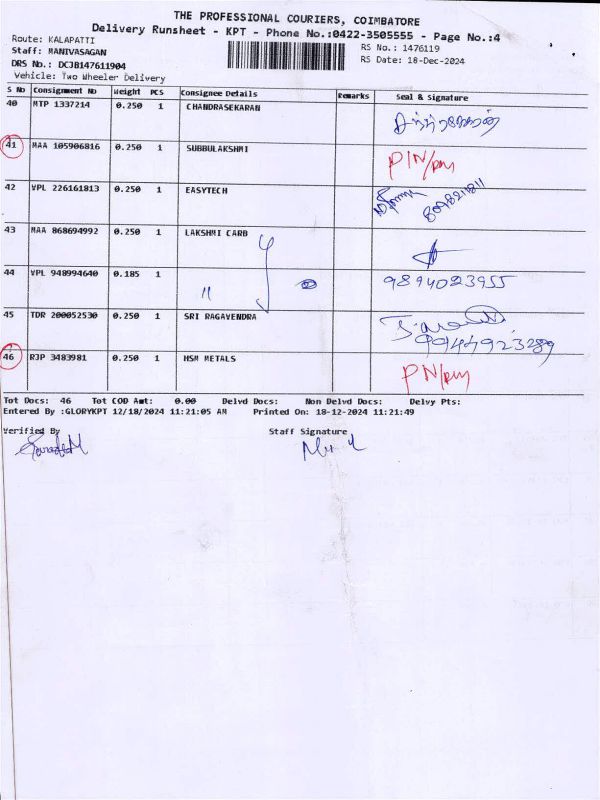 THE PROFESSIONAL COURIERS, COIMBATORE
Delivery Runsheet - KPT - Phone No.:0422-3505555 - Page No.:4
Route: KALAPATTI RS No.: 1476119
Staff: MANIVASAGAN RS Date: 18-Dec-2024
DRS No.: DCJB147611904
Vehicle: Two Wheeler Delivery
S No Consignment No Weight PCS Consignee Details Remarks Seal & Signature
40 MTP 1337214 0.250 1 CHANDRASEKARAN
41 MAA 105906816 0.250 1 SUBBULAKSHMI PIN/
42 VPL 226161813 0.250 1 EASYTECH
43 MAA 868694992 0.250 1 LAKSHMI CARB
44 VPL 948994640 0.185 1 " 9894023955
45 TDR 200052530 0.250 1 SRI RAGAVENDRA 9944923289
46 RJP 3483981 0.250 1 HSM METALS PN/
Tot Docs: 46 Tot COD Amt: 0.00 Delvd Docs: Non Delvd Docs: Delvy Pts:
Entered By :GLORYKPT 12/18/2024 11:21:05 AM Printed On: 18-12-2024 11:21:49
Verified By Staff Signature